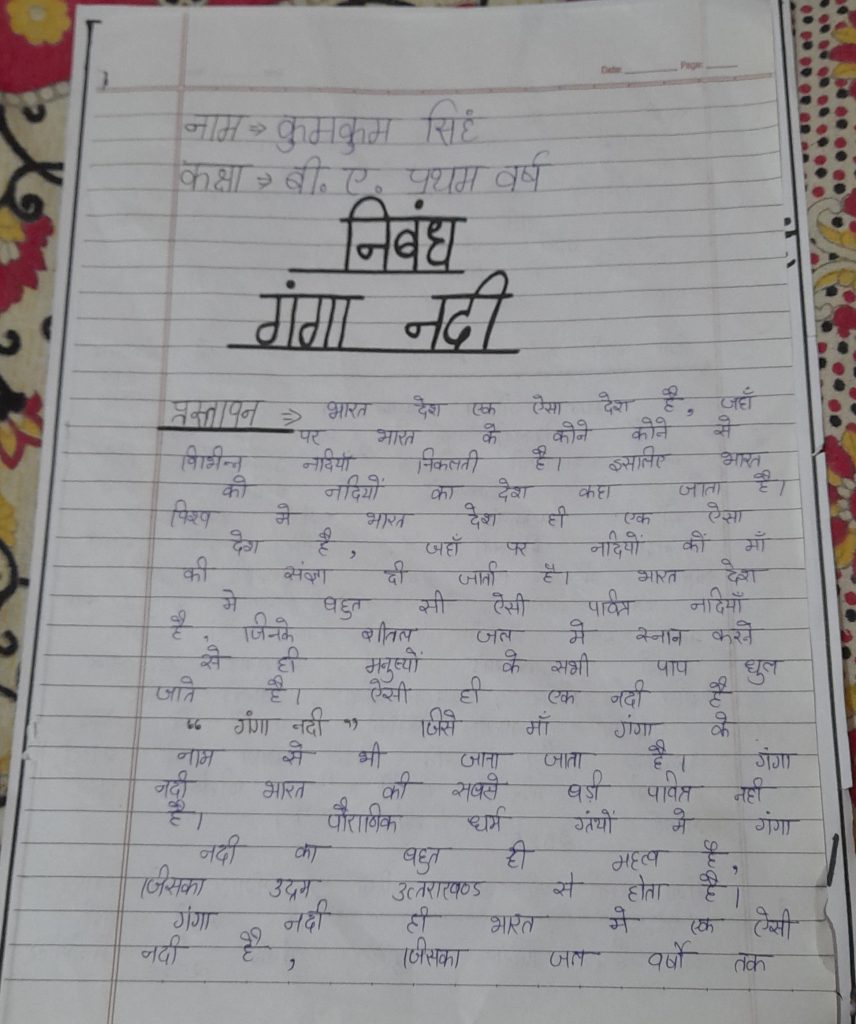 Date: ________ Page: _____
नाम ⇒ कुमकुम सिहं
कक्षा ⇒ बी. ए. प्रथम वर्ष
निबंध
गंगा नदी
प्रस्तावन ⇒ भारत देश एक ऐसा देश है, जहाँ
पर भारत के कोने कोने से
विभिन्न नदियाँ निकलती है। इसलिए भारत
को नदियों का देश कहा जाता है।
विश्व मे भारत देश ही एक ऐसा
देश है, जहाँ पर नदियों कों माँ
की संज्ञा दी जाती है। भारत देश
मे बहुत सी ऐसी पवित्र नदियाँ
है, जिनके शीतल जल मे स्नान करने
से ही मनुष्यों के सभी पाप धुल
जाते है। ऐसी ही एक नदी है
“ गंगा नदी ” जिसे माँ गंगा के
नाम से भी जाना जाता है। गंगा
नदी भारत की सबसे बड़ी पवित्र नदी
है। पौराणिक धर्म ग्रंथों मे गंगा
नदी का बहुत ही महत्व है,
जिसका उद्गम उत्तराखण्ड से होता है।
गंगा नदी ही भारत मे एक ऐसी
नदी है, जिसका जल वर्षो तक